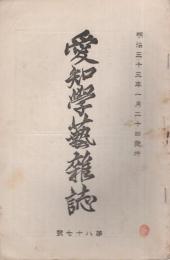 明治三十三年一月二十四日發行
愛知學藝雜誌
第八十七號